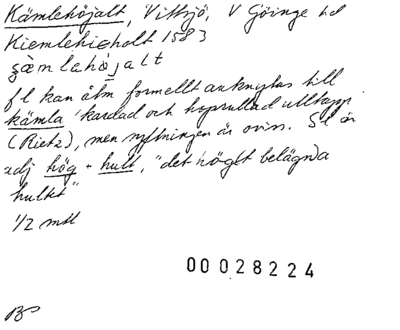 Kämlehöjalt, Vittsjö, V Göinge hd
Kiemlehieholt 1583
çämlahöjalt
f l kan åtm formellt anknytas till
kämla 'kardad och hoprullad ulltapp'
(Rietz), men syftningen är oviss. S l är
adj hög + hult, "det högt belägna
hultet"
1/2 mtl
00028224